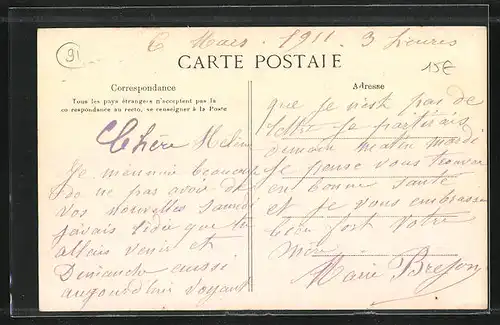 91
6 Mars 1911 3 heures
15€
CARTE POSTALE
Correspondance
Tous les pays étrangers n'acceptent pas la
correspondance au recto, se renseigner à la Poste
Chère
Je
de ne pas avoir de
vos nouvelles samedi
javais lidée que tu
allais venir et
Dimanche aussi
aujourdhui voyant
Adresse
que je n'est pas de
lettre je partirais
demain matin mardi
je pense vous trouver
en bonne santé
et je vous embrasse
bien fort votre
mère
Marie